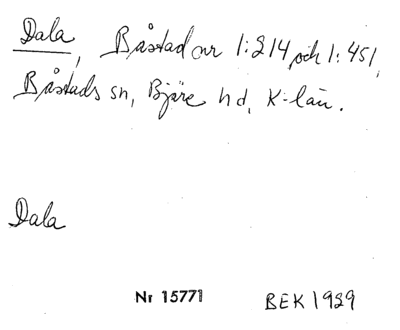 Dala, Båstad nr 1:214 och 1:451,
Båstads sn, Bjäre hd, K-län.
Dala
Nr 15771
BEK 1929